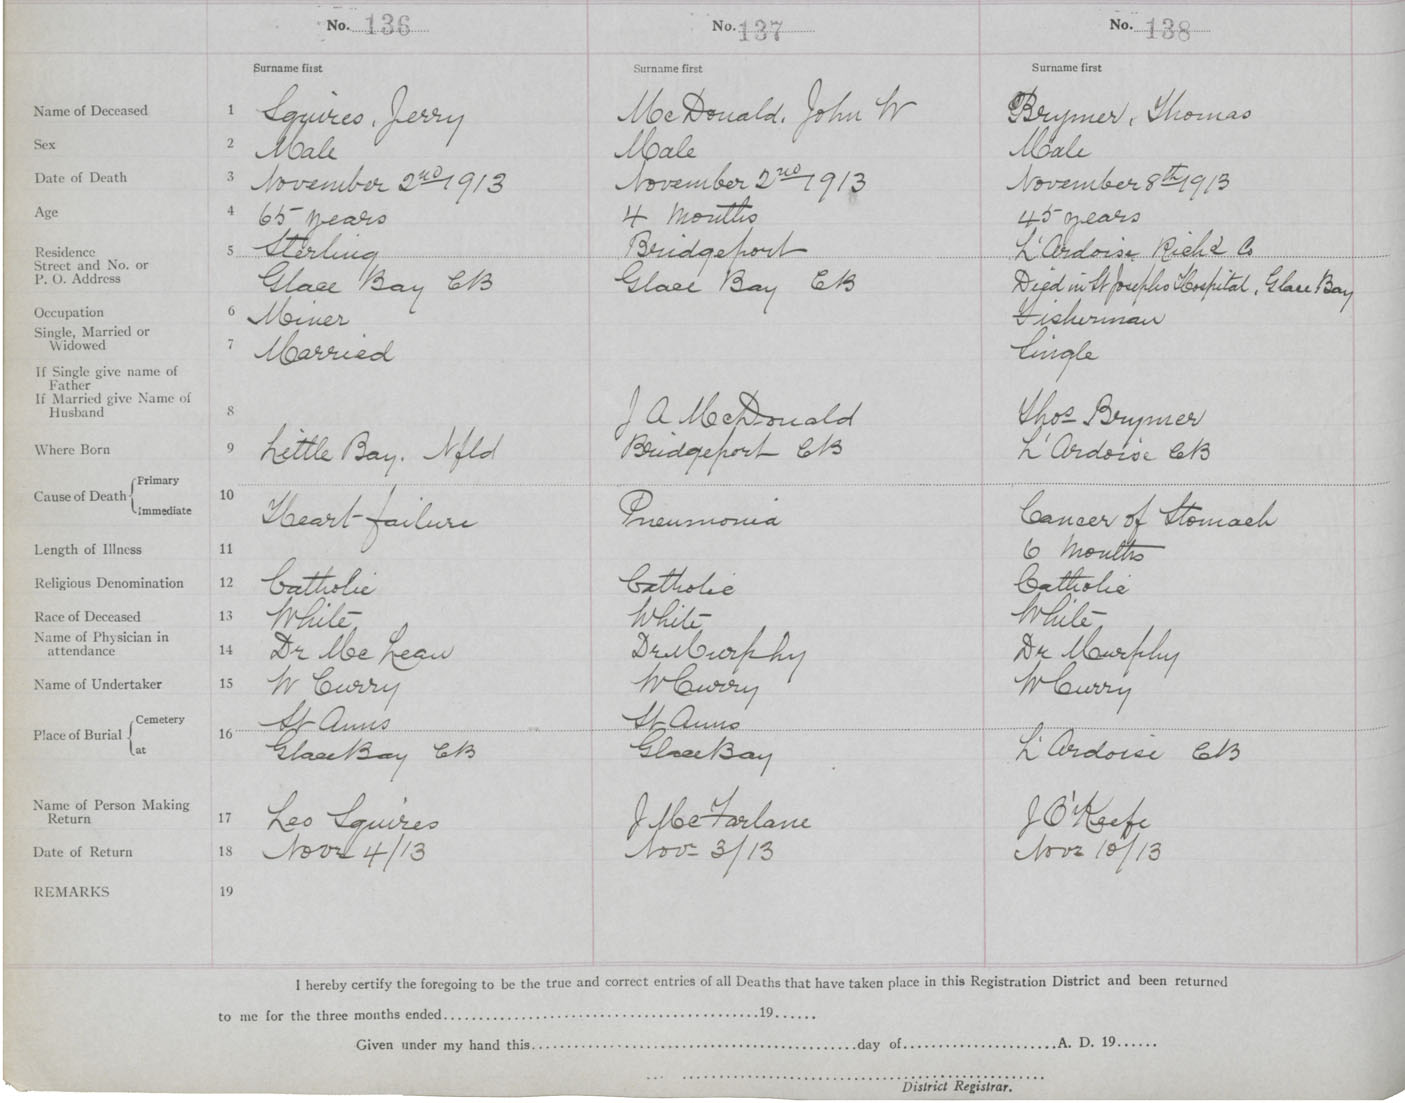 No. 136 No. 137 No. 138
Surname first Surname first Surname first
Name of Deceased 1 Squires, Jerry McDonald, John W Brymer, Thomas
Sex 2 Male Male Male
Date of Death 3 November 2nd 1913 November 2nd 1913 November 8th 1913
Age 4 65 years 4 Months 45 years
Residence 5 Sterling Bridgeport L'Ardoise Richd Co
Street and No. or
P. O. Address Glace Bay CB Glace Bay CB Died in St Josephs Hospital, Glace Bay
Occupation 6 Miner Fisherman
Single, Married or
Widowed 7 Married Single
If Single give name of
Father
If Married give Name of
Husband 8 J A McDonald Thos Brymer
Where Born 9 Little Bay. Nfld Bridgeport CB L'Ardoise CB
Cause of Death { Primary 10
Immediate Heart failure Pneumonia Cancer of Stomach
Length of Illness 11 6 Months
Religious Denomination 12 Catholic Catholic Catholic
Race of Deceased 13 White White White
Name of Physician in
attendance 14 Dr McLean Dr Murphy Dr Murphy
Name of Undertaker 15 W Curry W Curry W Curry
Place of Burial { Cemetery 16 St Anns St Anns
at Glace Bay CB Glace Bay L'Ardoise CB
Name of Person Making
Return 17 Leo Squires J McFarlane J O'Keefe
Date of Return 18 Novr 4/13 Nov 3/13 Novr 10/13
REMARKS 19
I hereby certify the foregoing to be the true and correct entries of all Deaths that have taken place in this Registration District and been returned
to me for the three months ended..............................................19......
Given under my hand this...............................................day of......................A. D. 19......
District Registrar.